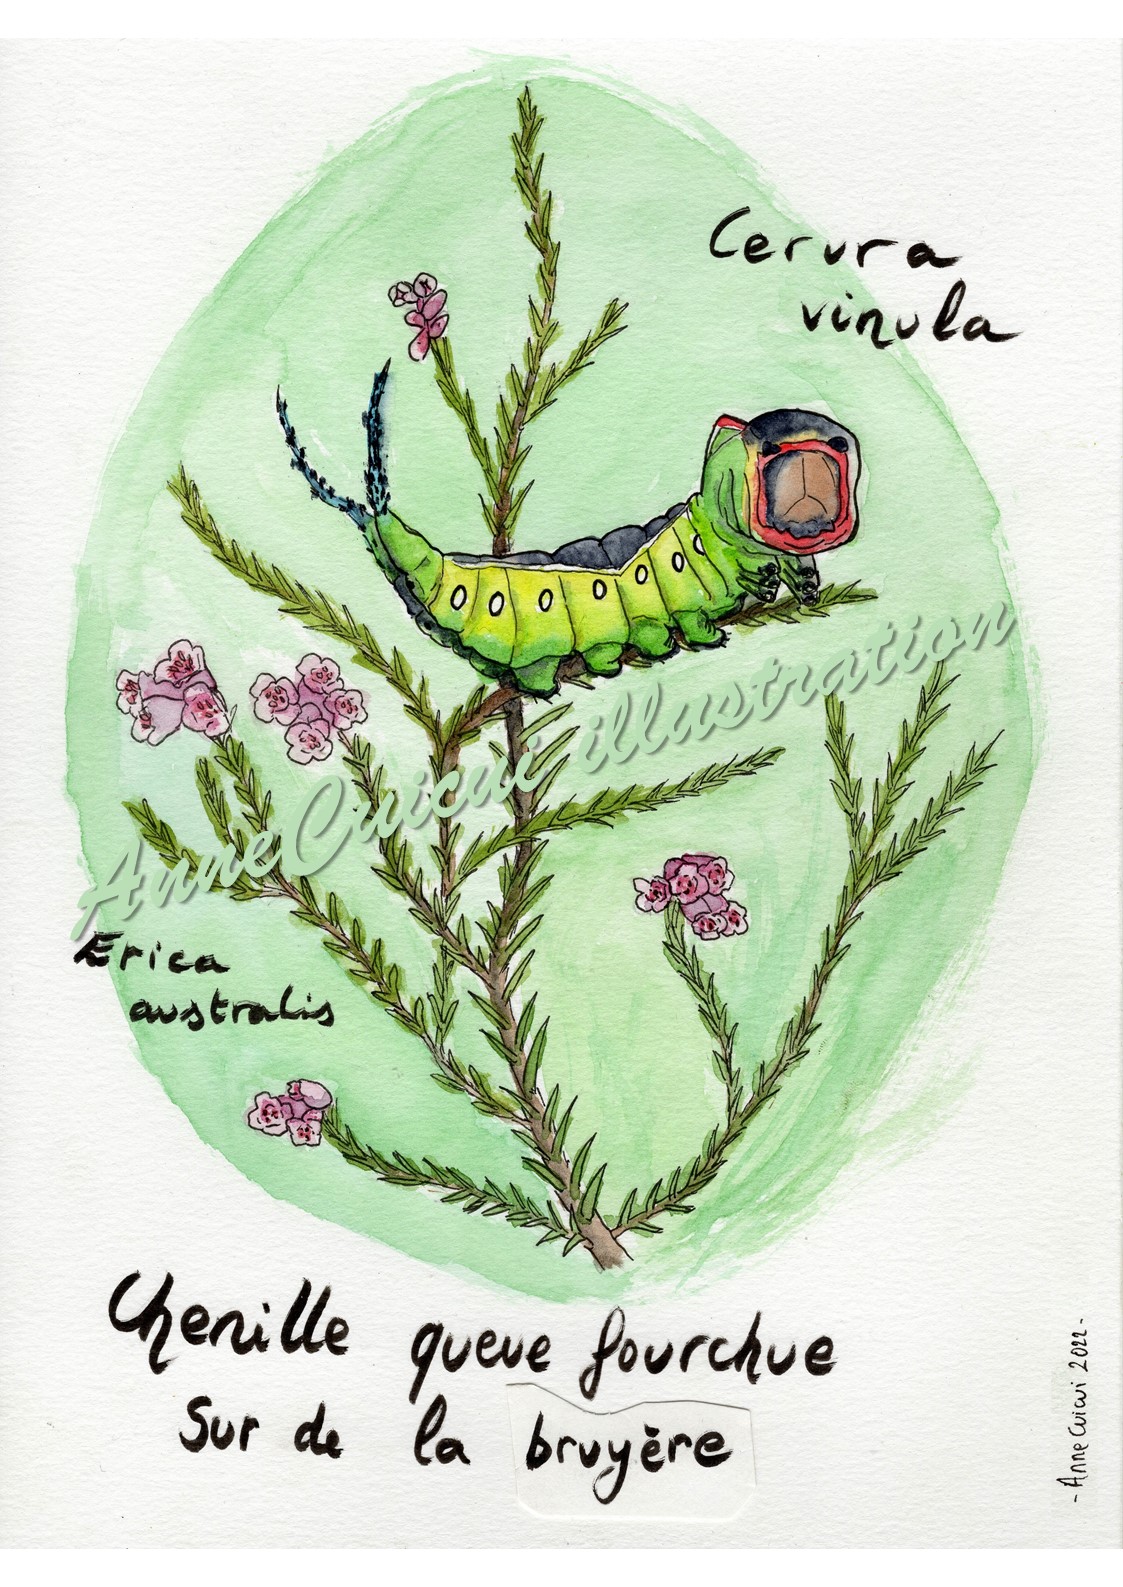 Cerura
vinula
AnneCuicui illustration
Erica
australis
Chenille queue fourchue
Sur de la bruyère
- Anne Cuicui 2022 -